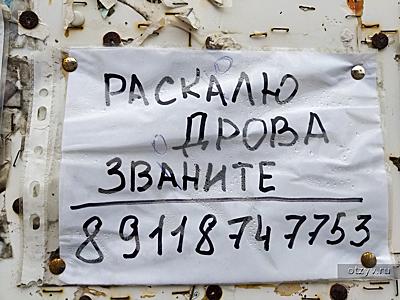 РАСКАЛЮ
ДРОВА
ЗВАНИТЕ
89118747753
otzyv.ru